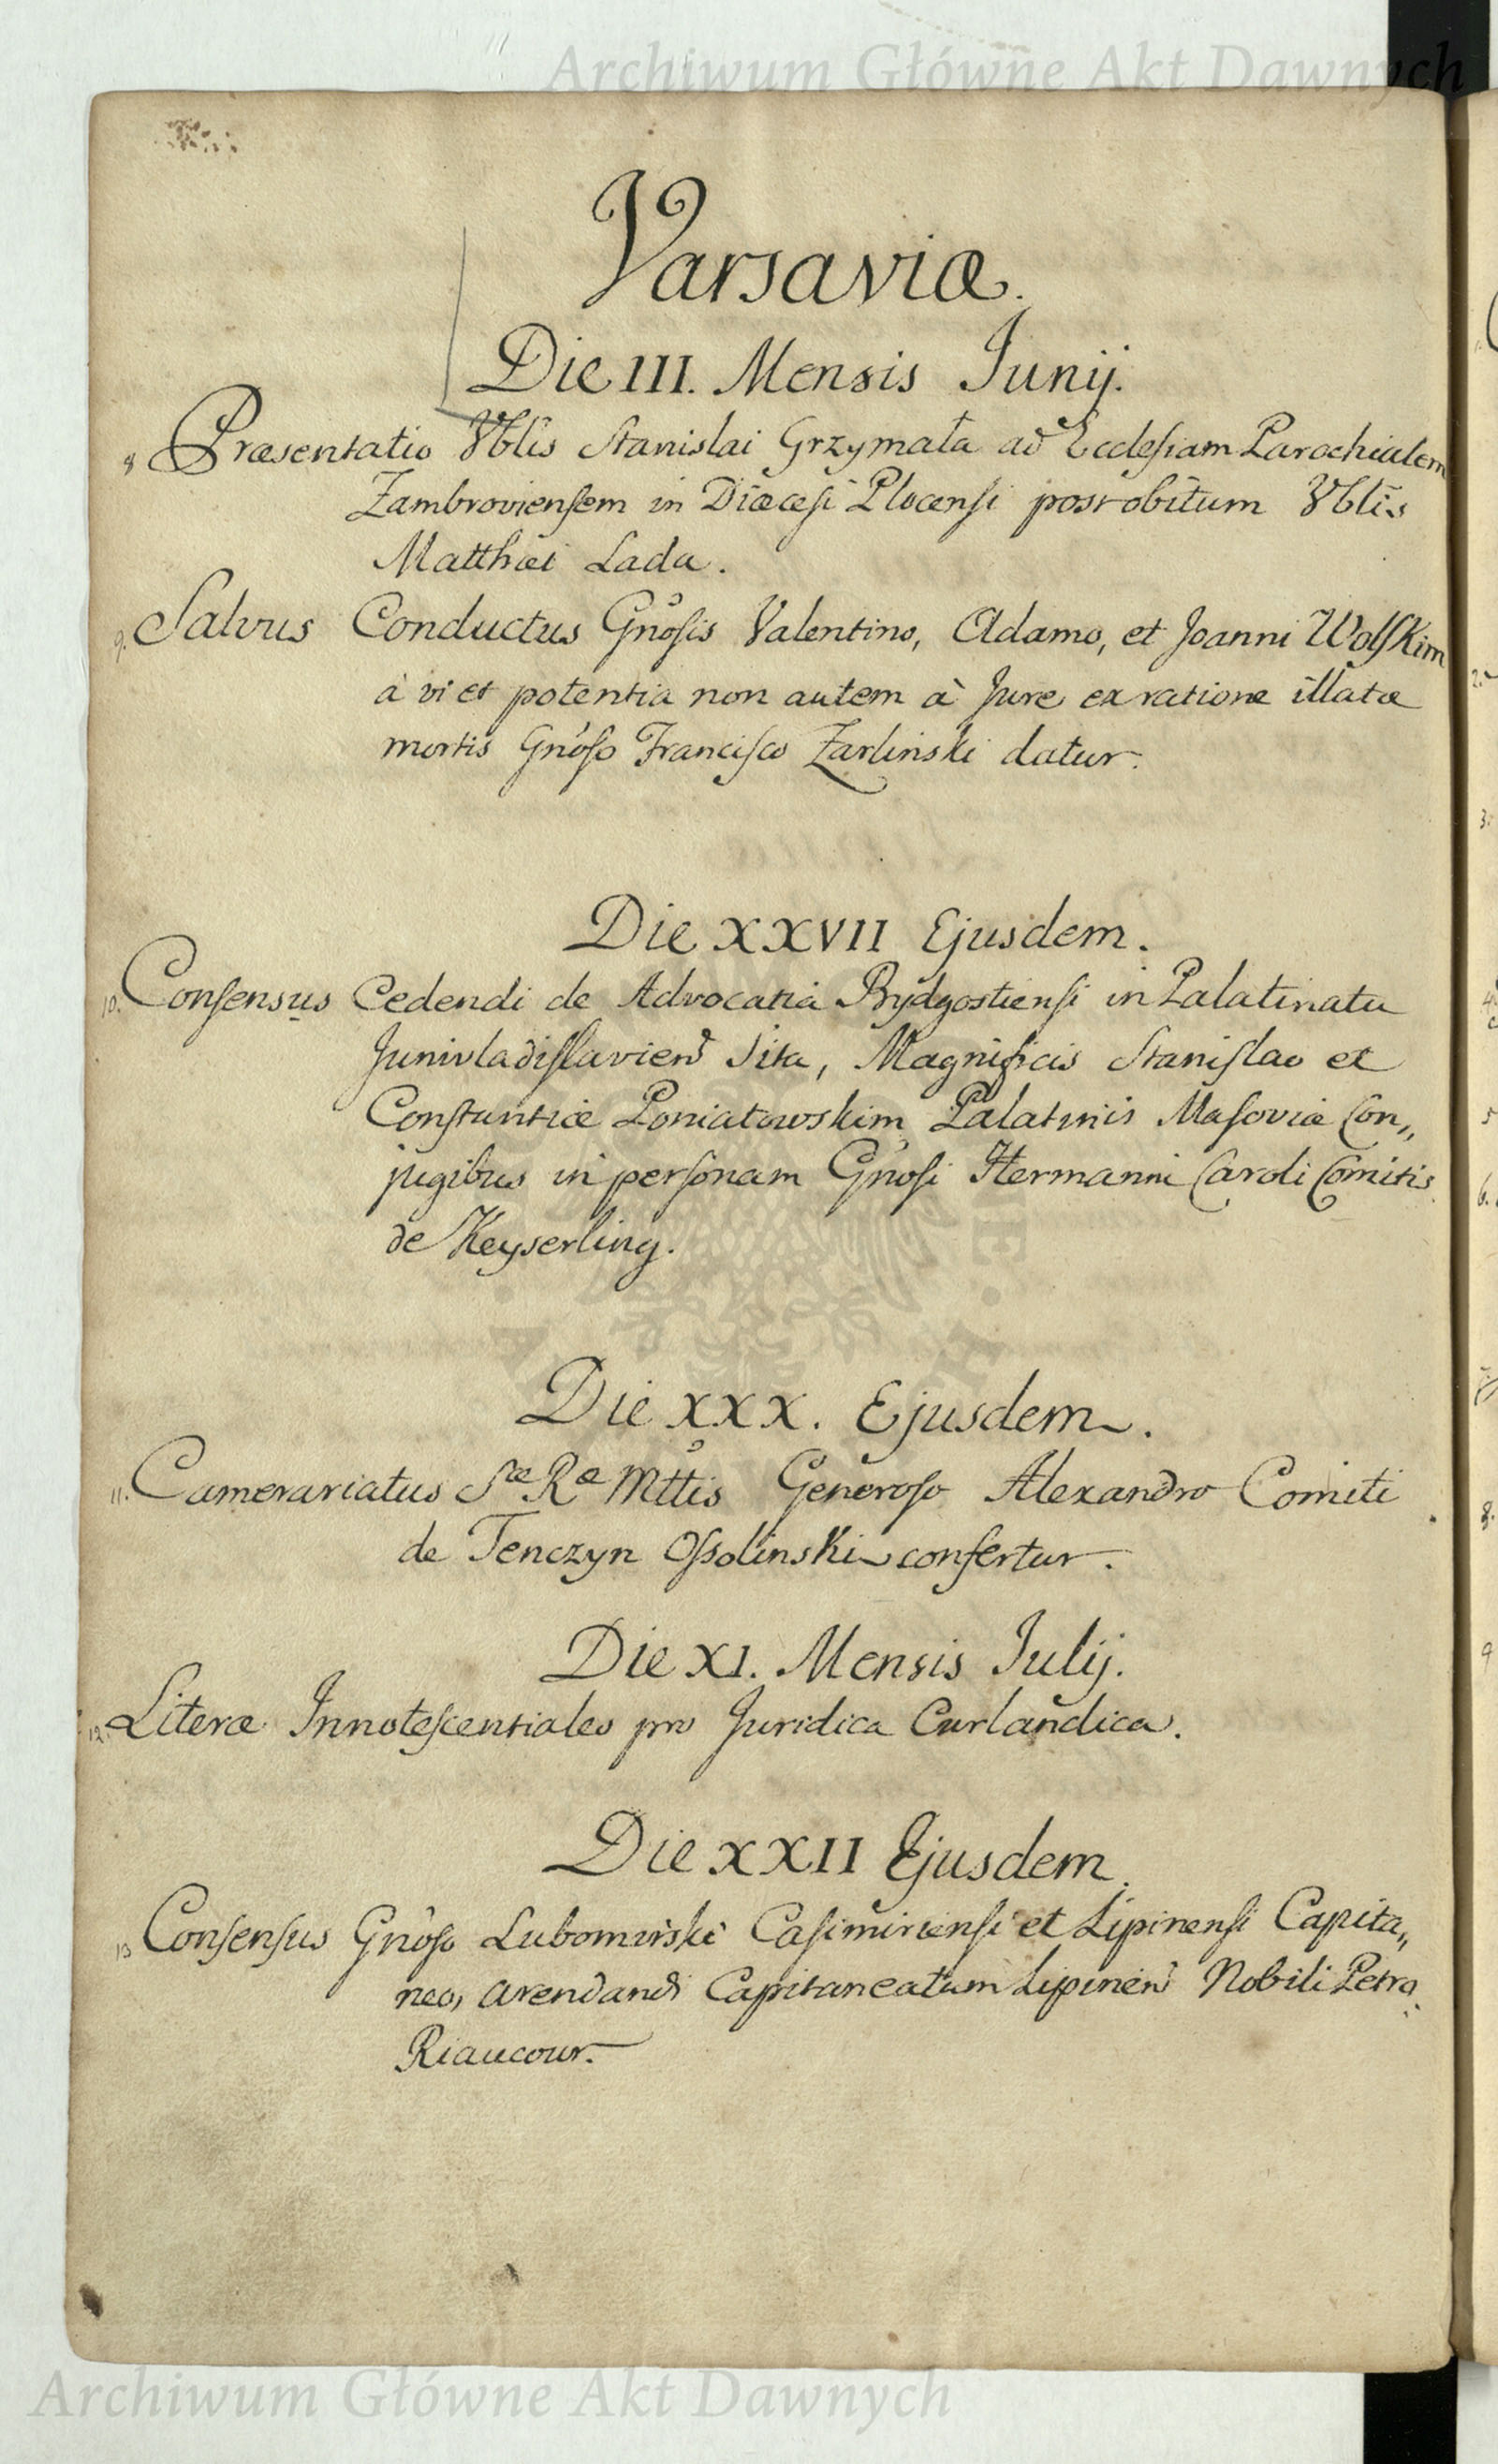 Archiwum Główne Akt Dawnych
Varsaviæ.
Die III. Mensis Junij.
8 Præsentatio Vblis Stanislai Grzymała ad Ecclesiam Parochialem
Zambroviensem in Diæcesi Plocensi post obitum Vblis
Matthæi Lada.
9. Salvus Conductus Gnosis Valentino, Adamo, et Joanni Wolskim
à vi et potentia non autem à Jure ex ratione illatæ
mortis Gnoso Francisco Zarlinski datur.
Die XXVII Ejusdem.
10. Consensus Cedendi de Advocatia Bydgostiensi in Palatinatu
Junivladislavien Sita, Magnificis Stanislao et
Constantiæ Poniatowskim Palatinis Masoviæ Con„
jugibus in personam Gnosi Hermanni Caroli Comitis
de Keyserling.
Die XXX. Ejusdem.
11. Camerariatus Sæ Ræ Mttis Generoso Alexandro Comiti
de Tenczyn Ossolinski confertur.
Die XI. Mensis Julij.
12. Literæ Innotescentiales pro Juridica Curlandica.
Die XXII Ejusdem.
13 Consensus Gnoso Lubomirski Casimiriensi et Lipinensi Capita„
neo, arendandi Capitaneatum Lipinen Nobili Petro
Riaucour.
Archiwum Główne Akt Dawnych